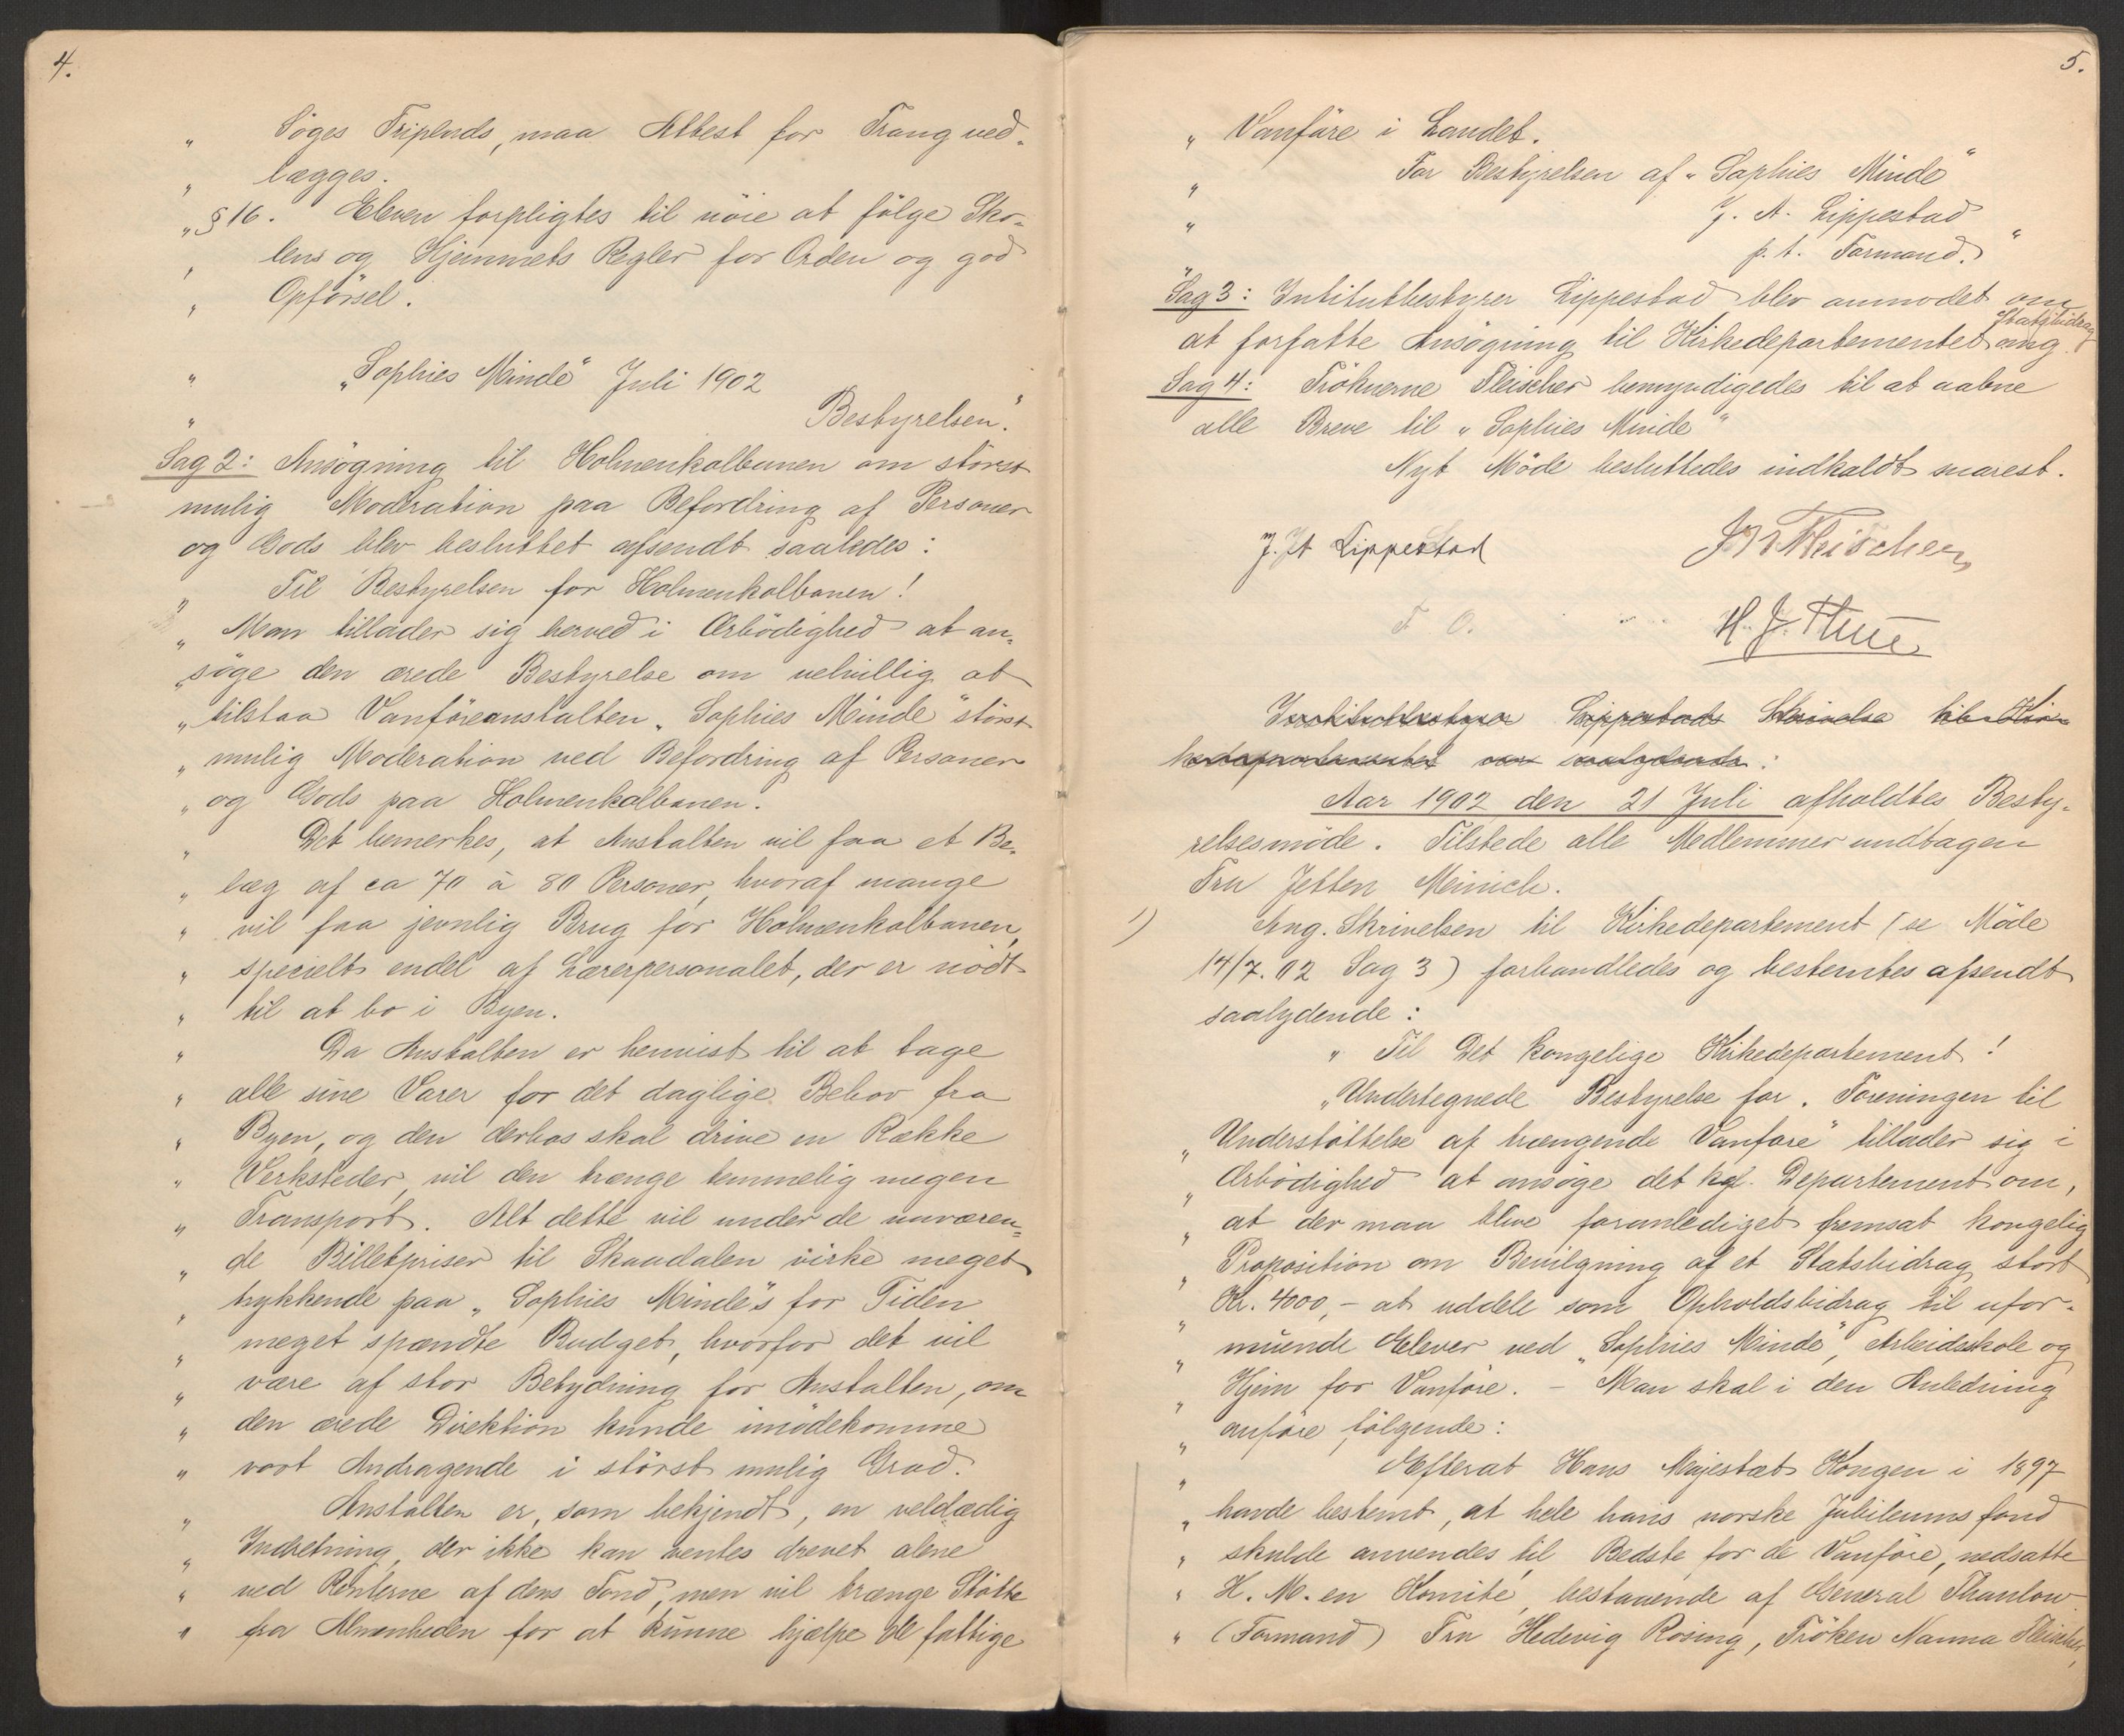 4.
„ Søges Friplads, maa Attest for Trang ved-
„ lægges.
„ § 16. Eleven forpligtes til nøie at følge Sko-
„ lens og Hjemmets Regler for Orden og god
„ Opførsel.
„ „Sophies Minde" Juli 1902
„ Bestyrelsen."
Sag 2: Ansøgning til Holmenkolbanen om størst
mulig Moderation paa Befordring af Personer
og Gods blev besluttet afsendt saaledes:
„ Til Bestyrelsen for Holmenkolbanen!
„ Man tillader sig herved i Ærbødighed at an-
„ søge den ærede Bestyrelse om velvillig at
„ tilstaa Vanføreanstalten „Sophies Minde" størst
„ mulig Moderation ved Befordring af Personer
„ og Gods paa Holmenkolbanen.
„ Det bemerkes, at Anstalten vil faa et Be-
„ læg af ca 70 à 80 Personer, hvoraf mange
„ vil faa jevnlig Brug for Holmenkolbanen,
„ specielt endel af Lærerpersonalet, der er nødt
„ til at bo i Byen.
„ Da Anstalten er henvist til at tage
„ alle sine Varer for det daglige Behov fra
„ Byen, og den derhos skal drive en Række
„ Verksteder, vil den trænge temmelig megen
„ Transport. Alt dette vil under de nuværen-
„ de Billetpriser til Skaadalen virke meget
„ trykkende paa „Sophies Minde"s for Tiden
„ meget spændte Budget, hvorfor det vil
„ være af stor Betydning for Anstalten, om
„ den ærede Direktion kunde imødekomme
„ vort Andragende i størst mulig Grad.
„ Anstalten er, som bekjendt, en veldædig
„ Indretning, der ikke kan ventes drevet alene
„ ved Renterne af dens Fond, men vil trænge Støtte
„ fra Almenheden for at kunne hjælpe de fattige
5.
„ Vanføre i Landet.
„ For Bestyrelsen af „Sophies Minde"
„ J. A. Lippestad
„ p. t. Formand."
Sag 3: Intitutbestyrer Lippestad blev anmodet om
at forfatte Ansøgning til Kirkedepartementet ang. Statsbidrag
Sag 4: Frøknerne Fleischer bemyndigedes til at aabne
alle Breve til „Sophies Minde"
Nyt Møde besluttedes indkaldt snarest.
J. A Lippestad Fleischer
H. J. Thue
Institutbestyrer Lippestads Skrivelse til Kir-
kedepartementet var saalydende:
Aar 1902 den 21 Juli afholdtes Besty-
relsesmøde. Tilstede alle Medlemmer undtagen
Fru Jetten Meinich.
1) Ang. Skrivelsen til Kirkedepartement (se Møde
14/7. 02 Sag 3) forhandledes og bestemtes afsendt
saalydende:
„ Til Det kongelige Kirkedepartement!
„Undertegnede Bestyrelse for „Foreningen til
„ Understøttelse af trængende Vanføre" tillader sig i
„ Ærbødighed at ansøge det kgl. Departement om,
„ at der maa blive foranlediget fremsat kongelig
„ Proposition om Bevilgning af et Statsbidrag stort
„ Kr. 4000,- at uddele som Opholdsbidrag til ufor-
„ muende Elever ved „Sophies Minde", Arbeidsskole og
„ Hjem for Vanføre. - Man skal i den Anledning
„ anføre følgende:
„ Efterat Hans Majestæt Kongen i 1897
„ havde bestemt, at hele hans norske Jubileumsfond
„ skulde anvendes til Bedste for de Vanføre, nedsatte
„ H. M. en Komite, bestaaende af General Thaulow
„ (Formand) Fru Hedevig Rosing, Frøken Nanna Fleischer,